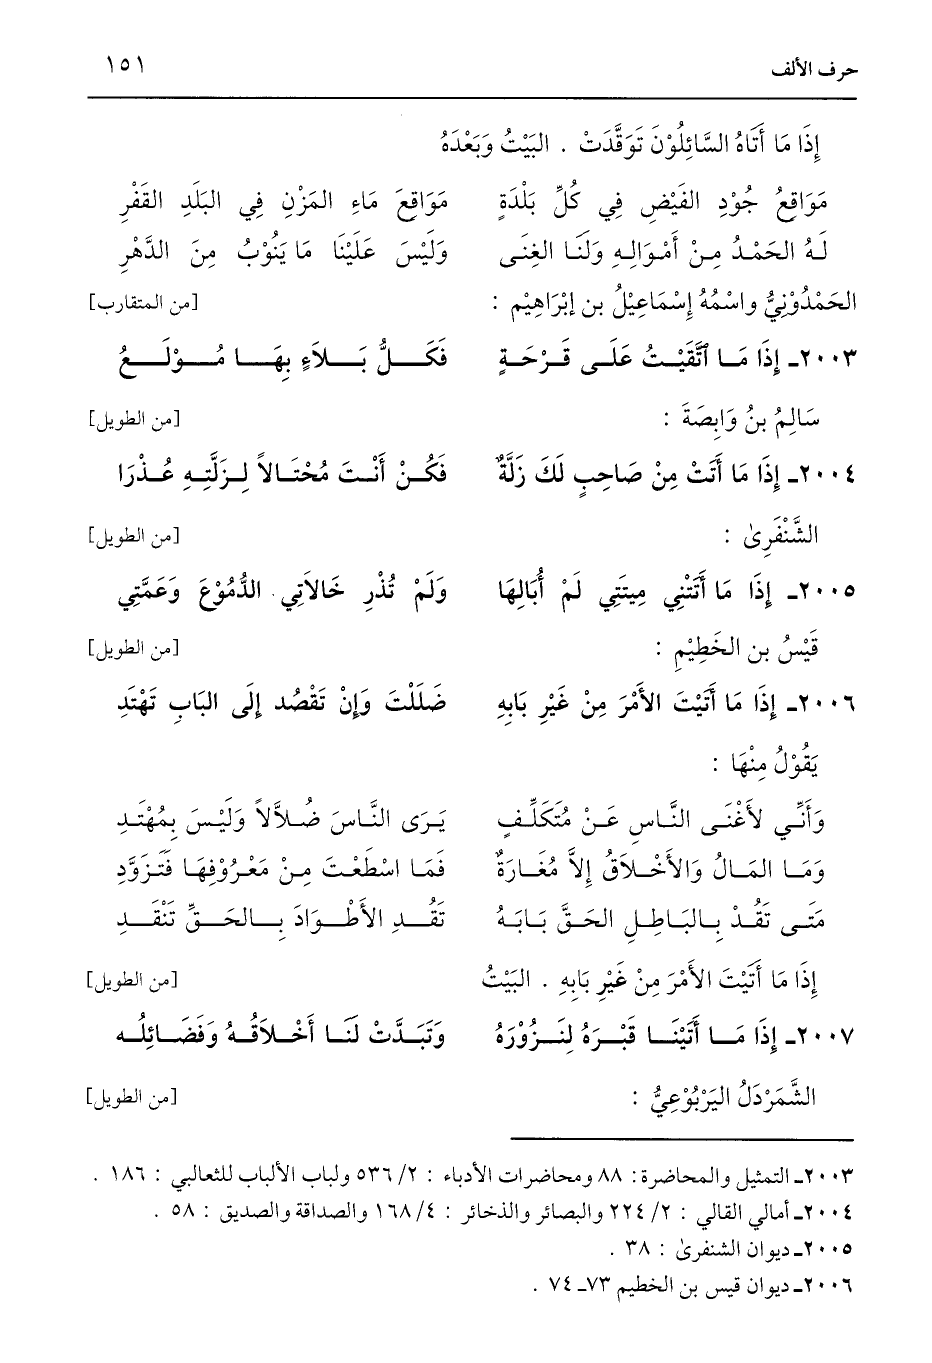 حرف الألف ١٥١
إِذَا مَا أَتَاهُ السَّائِلُوْنَ تَوَقَّدَتْ . البَيْتُ وَبَعْدَهُ
مَوَاقِعُ جُوْدِ الفَيْضِ فِي كُلِّ بَلْدَةٍ مَوَاقِعَ مَاءِ المَزْنِ فِي البَلَدِ القَفْرِ
لَهُ الحَمْدُ مِنْ أَمْوَالِهِ وَلَنَا الغِنَى وَلَيْسَ عَلَيْنَا مَا يَنُوْبُ مِنَ الدَّهْرِ
الحَمْدُوْنِيُّ واسْمُهُ إِسْمَاعِيْلُ بن إِبْرَاهِيْم : [من المتقارب]
٢٠٠٣ـ إِذَا مَا اتَّقَيْتُ عَلَى قَرْحَةٍ فَكُلُّ بَلاَءٍ بِهَا مُوْلَعُ
سَالِمُ بنُ وَابِصَةَ : [من الطويل]
٢٠٠٤ـ إِذَا مَا أَتَتْ مِنْ صَاحِبٍ لَكَ زَلَّةٌ فَكُنْ أَنْتَ مُحْتَالاً لِزَلَّتِهِ عُذْرَا
الشَّنْفَرِىٰ : [من الطويل]
٢٠٠٥ـ إِذَا مَا أَتَتْنِي مِيتَتِي لَمْ أُبَالِهَا وَلَمْ تُذْرِ خَالاَتِي الدُّمُوْعَ وَعَمَّتِي
قَيْسُ بن الخَطِيْمِ : [من الطويل]
٢٠٠٦ـ إِذَا مَا أَتَيْتَ الأَمْرَ مِنْ غَيْرِ بَابِهِ ضَلَلْتَ وَإِنْ تَقْصُد إِلَى البَابِ تَهْتَدِ
يَقُوْلُ مِنْهَا :
وَأَنِّي لأَغْنَى النَّاسِ عَنْ مُتَكَلِّفٍ يَرَى النَّاسَ ضُلاَّلاً وَلَيْسَ بِمُهْتَدِ
وَمَا المَالُ وَالأَخْلاَقُ إِلاَّ مُعَارَةٌ فَمَا اسْطَعْتَ مِنْ مَعْرُوْفِهَا فَتَزَوَّدِ
مَتَى تَقُدْ بِالبَاطِلِ الحَقَّ بَابَهُ تَقُدِ الأَطْوَادَ بِالحَقِّ تَنْقَدِ
إِذَا مَا أَتَيْتَ الأَمْرَ مِنْ غَيْرِ بَابِهِ . البَيْتُ [من الطويل]
٢٠٠٧ـ إِذَا مَا أَتَيْنَا قَبْرَهُ لِنَزُوْرَهُ وَتَبَدَّتْ لَنَا أَخْلاَقُهُ وَفَضَائِلُه
الشَّمَرْدَلُ اليَرْبُوْعِيُّ : [من الطويل]
٢٠٠٣ـ التمثيل والمحاضرة: ٨٨ ومحاضرات الأدباء : ٢/ ٥٣٦ ولباب الألباب للثعالبي : ١٨٦ .
٢٠٠٤ـ أمالي القالي : ٢/ ٢٢٤ والبصائر والذخائر : ٤/ ١٦٨ والصداقة والصديق : ٥٨ .
٢٠٠٥ـ ديوان الشنفرىٰ : ٣٨ .
٢٠٠٦ـ ديوان قيس بن الخطيم ٧٣ـ ٧٤ .